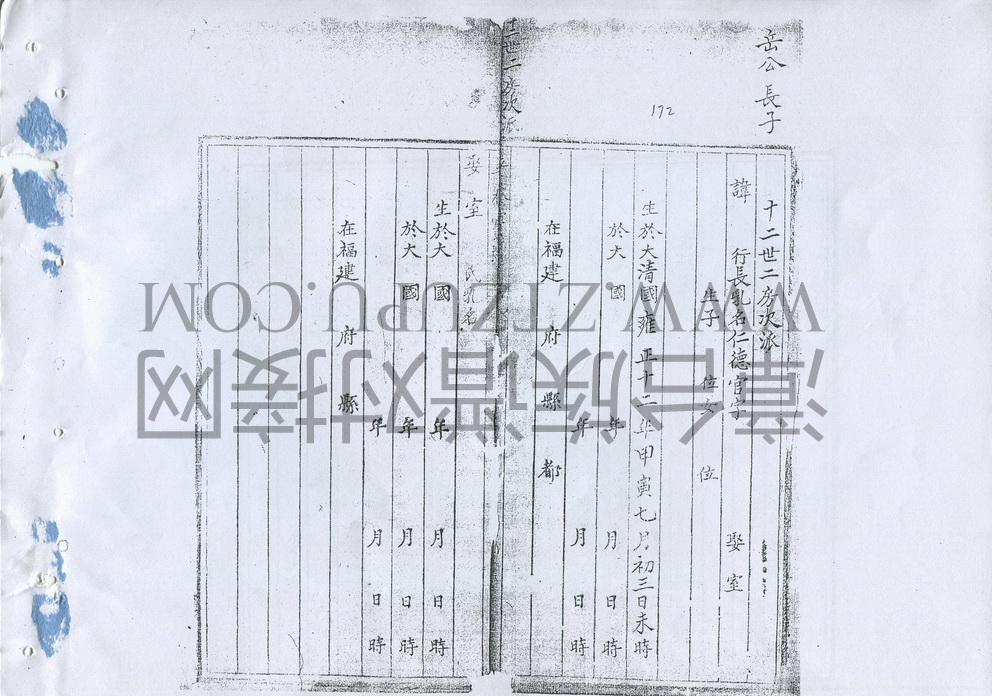 岳公長子
172
十二世二房次派
諱 行長乳名仁德官字 娶室
生子 位女 位
生於大清國雍正十二年甲寅七月初三日未時
於大 國 年 月 日 時
年 月 日 時
在福建 府 縣 都
二世二房次派
娶室 氏乳名
生於大 國 年 月 日 時
於大 國 年 月 日 時
年 月 日 時
在福建 府 縣
WWW.ZTZUPU.COM
漳台族谱对接网